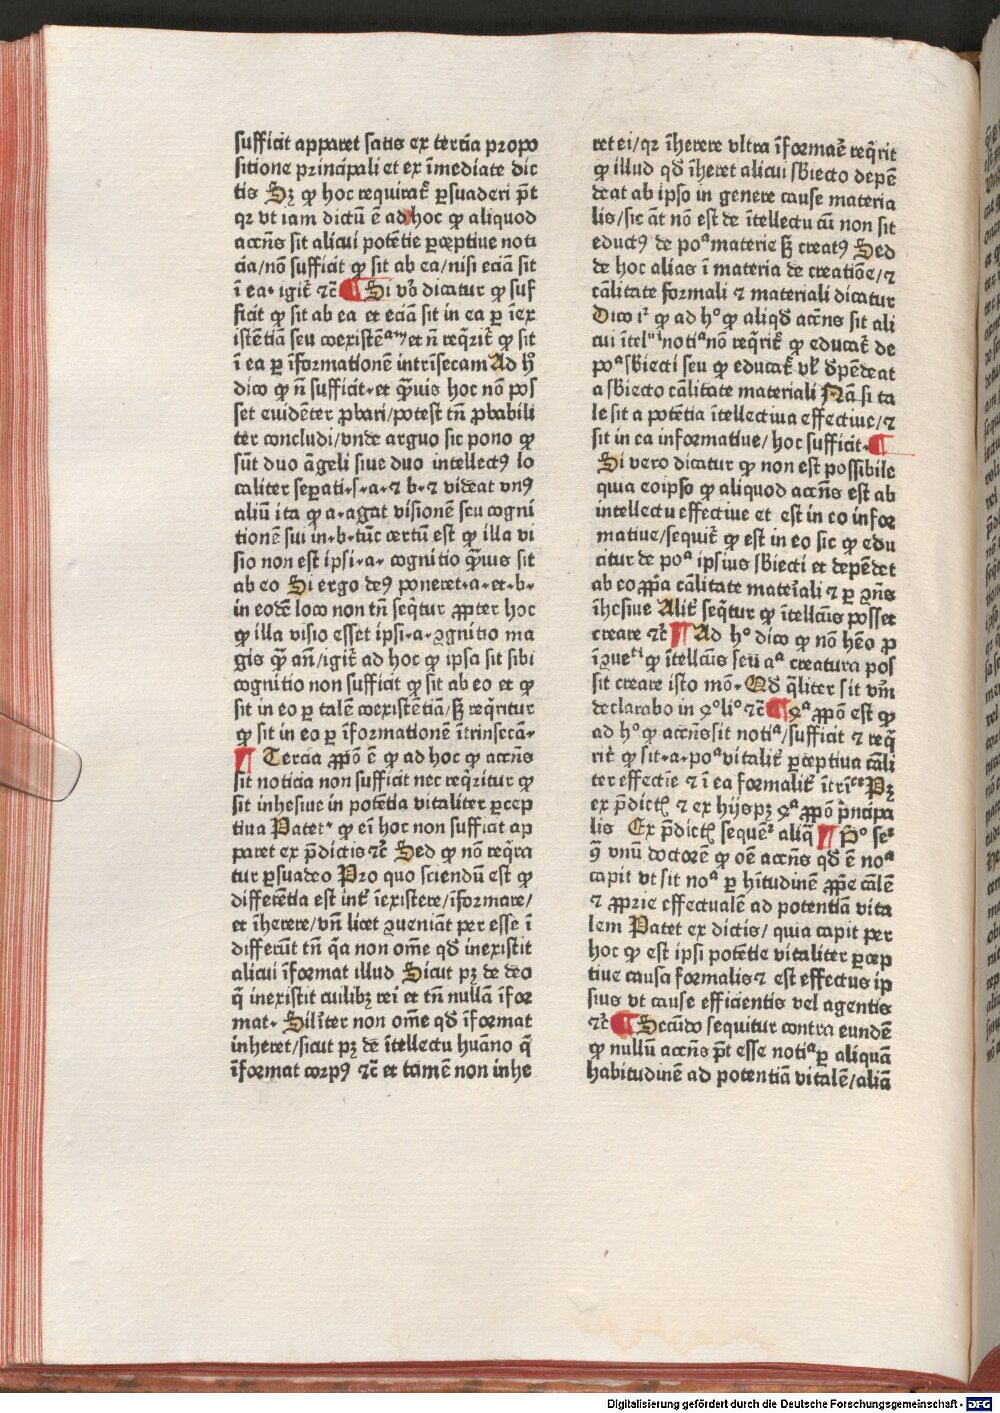 sufficit apparet satis ex tercia propo
sitione principali et ex īmediate dic
tis Sꝫ ꝙ hoc requirat᷑ ꝑsuaderi p̄t
qꝛ vt iam dictū ē ad hoc ꝙ aliquod
accn̄s sit alicui potētie ꝑceptiue noti
cia/nō sufficit ꝙ sit ab ea/nisi eciā sit
ī ea· igit᷑ ⁊c̄ ¶ Si vo᷑ dicatur ꝙ suf
ficit ꝙ sit ab ea et eciā sit in ea ꝑ īex
istētiā seu coexistē et n̄ req̄rit᷑ ꝙ sit
ī ea ꝑ īformationē intrīsecam Ad hᷣ
dico ꝙ n̄ sufficit·et q̄uis hoc nō pos
set euidēter ꝓbari/potest tn̄ ꝓbabili
ter concludi/vnde arguo sic pono ꝙ
sūt duo āgeli siue duo intellectꝰ lo
caliter seꝑati·s·a·⁊ b·⁊ videat vnꝰ
aliū ita ꝙ a·agat visionē seu cogni
tionē sui in·b·tūc certū est ꝙ illa vi
sio non est ipsi·a· cognitio q̄uis sit
ab eo Si ergo deꝰ poneret·a·et·b·
in eodē loco non tn̄ seq̄tur ꝓpter hoc
ꝙ illa visio esset ipsi·a·ꝯgnitio ma
gis q̄ an̄/igit᷑ ad hoc ꝙ ipsa sit sibi
cognitio non sufficit ꝙ sit ab eo et ꝙ
sit in eo ꝑ talē coexistētiā/sꝫ req̄ritur
ꝙ sit in eo ꝑ īformationē ītrinsecā·
¶ Tercia ꝓpō ē ꝙ ad hoc ꝙ accn̄s
sit noticia non sufficit nec req̄ritur ꝙ
sit inhesiue in potētia vitaliter ꝑcep
tiua Patet· ꝙ ei hoc non sufficit ap
paret ex p̄dictis ⁊c̄ Sed ꝙ nō req̄ra
tur ꝑsuadeo Pro quo sciendū est ꝙ
differētia est int᷑ īexistere/īformare/
et īherere/vn̄ licet ꝯueniāt per esse ī
differūt tn̄ q̄a non om̄e qd̄ inexistit
alicui īformat illud Sicut pꝫ de deo
q̄ inexistit cuilibꝫ rei et tn̄ nullā īfor
mat· Silīter non om̄e qd̄ īformat
inheret/sicut pꝫ de ītellectu huāno q̄
īformat corpꝰ ⁊c̄ et tamē non inhe
ret ei/qꝛ īherere vltra īformaē req̄rit
ꝙ illud qd̄ īheret alicui sb̄iecto depē
deat ab ipso in genere cause materia
lis/sic āt nō est de ītellectu cū non sit
eductꝰ de poᵃ materie sꝫ creatꝰ Sed
de hoc alias ī materia de creatiōe/⁊
cālitate formali ⁊ materiali dicatur
Dico ꝙ ad hᵒ ꝙ aliqd̄ accn̄s sit ali
cui ītelˡⁱ notiᵃ nō req̄rit᷑ ꝙ educat᷑ de
poᵃ sb̄iecti seu ꝙ educat᷑ vl᷑ dꝑēdeat
a sb̄iecto cālitate materiali Nā si ta
le sit a potētia ītellectiua effectiue/⁊
sit in ea informatiue/ hoc sufficit· ¶
Si vero dicatur ꝙ non est possibile
quia eoipso ꝙ aliquod accn̄s est ab
intellectu effectiue et est in eo infor
matiue/sequit᷑ ꝙ est in eo sic ꝙ edu
citur de poᵃ ipsius sb̄iecti et depēdet
ab eo ꝓpa cālitate mateīali ⁊ ꝑ ꝯn̄s
īhesiue Alit᷑ seq̄tur ꝙ ītellcūs posset
creare ⁊c̄ ¶ Ad hᵒ dico ꝙ nō hēo ꝓ
īꝯueᵗⁱ ꝙ ītellcūs seu aᵃ creatura pos
sit creare isto mō· Qd̄ q̄liter sit vm̄
declarabo in ꝯᵒ liᵒ ⁊c̄ ¶ ꝯᵃ ꝓpō est ꝙ
ad hᵒ ꝙ accn̄s sit notiᵃ/sufficit ⁊ req̄
rit᷑ ꝙ sit·a·poᵃ vitalit᷑ ꝑceptiua cāli
ter effectiē ⁊ ī ea formalit᷑ ītrīᶜᵉ Pꝫ
ex p̄dictꝭ ⁊ ex hijs pꝫ ꝯᵃ ꝓpō p̄ncipa
lis Ex p̄dictꝭ sequē᷑ aliq̄ ¶ Pᵒ se᷑
ꝯ̄ vnū doctorē ꝙ oē accn̄s qd̄ ē noᵃ
capit vt sit noᵃ ꝑ hītudinē ꝓpē cālē
⁊ ꝓprie effectualē ad potentiā vita
lem Patet ex dictis/ quia capit per
hoc ꝙ est ipsi potētie vitaliter ꝑcep
tiue causa formalis ⁊ est effectus ip
sius vt cause efficientis vel agentis
⁊c̄ ¶ Secūdo sequitur contra eundē
ꝙ nullū accn̄s p̄t esse notiᵃ ꝑ aliquā
habitudinē ad potentiā vitalē/aliā
Digitalisierung gefördert durch die Deutsche Forschungsgemeinschaft - DFG